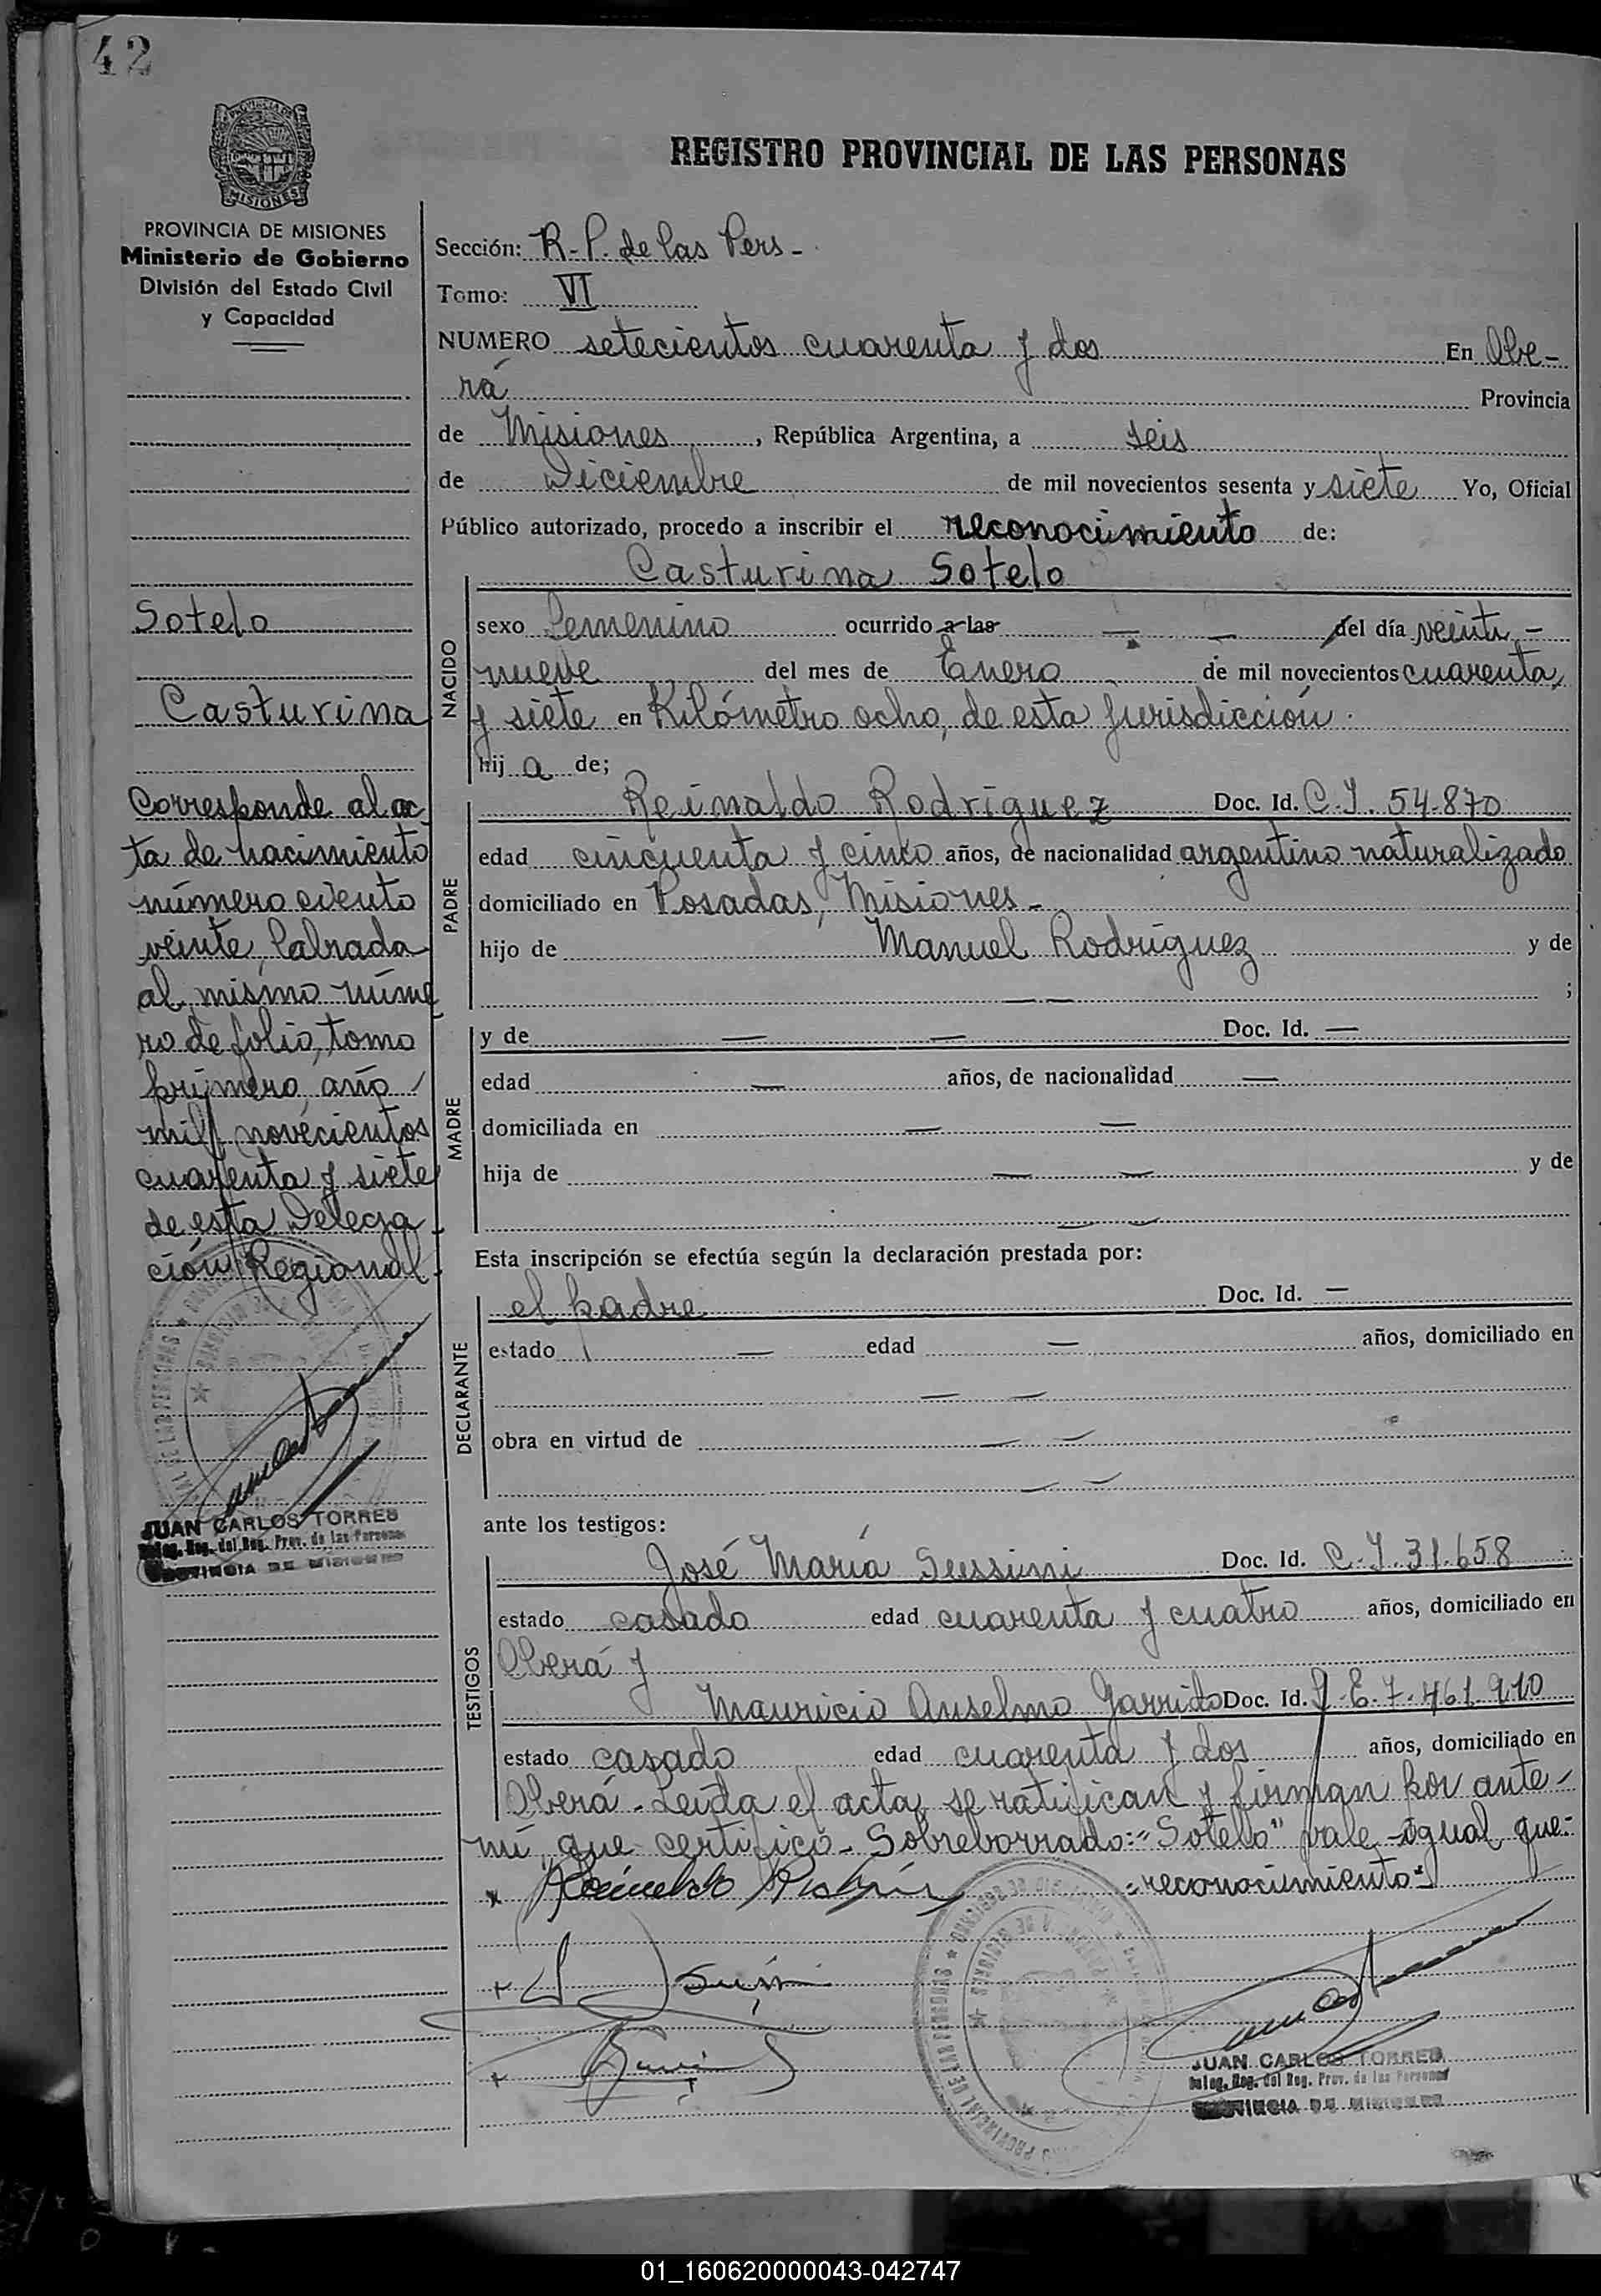 42
PROVINCIA DE
MISIONES
REGISTRO PROVINCIAL DE LAS PERSONAS
PROVINCIA DE MISIONES
Ministerio de Gobierno
División del Estado Civil
y Capacidad
Sotelo
Casturina
Corresponde al ac-
ta de nacimiento
número ciento
veinte, labrada
al mismo núme
ro de folio, tomo
primero, año
mil novecientos
cuarenta y siete
de esta Delega
ción Regional.
JUAN CARLOS TORRES
Deleg. Reg. del Reg. Prov. de las Personas
PROVINCIA DE MISIONES
Sección: R.P. de las Pers -
Tomo: VI
NUMERO setecientos cuarenta y dos En Obe-
rá Provincia
de Misiones, República Argentina, a seis
de Diciembre de mil novecientos sesenta y siete Yo, Oficial
Público autorizado, procedo a inscribir el reconocimiento de:
Casturina Sotelo
NACIDO
sexo Femenino ocurrido a las — — del día veinti-
nueve del mes de Enero de mil novecientos cuarenta
y siete en Kilómetro ocho, de esta jurisdicción.
hij a de;
PADRE
Reinaldo Rodriguez Doc. Id. C.I. 54.870
edad cincuenta y cinco años, de nacionalidad argentino naturalizado
domiciliado en Posadas, Misiones -
hijo de Manuel Rodríguez y de
— — ;
MADRE
y de — — Doc. Id. —
edad — años, de nacionalidad —
domiciliada en — —
hija de — — y de
— —
Esta inscripción se efectúa según la declaración prestada por:
DECLARANTE
el padre Doc. Id. —
estado — edad — años, domiciliado en
— —
obra en virtud de — —
— —
ante los testigos:
TESTIGOS
José María Doc. Id. C.I. 31.658
estado casado edad cuarenta y cuatro años, domiciliado en
Oberá y
Mauricio Anselmo Garrido Doc. Id. L.E. 7.461.910
estado casado edad cuarenta y dos años, domiciliado en
Oberá - Leída el acta, se ratifican y firman por ante-
mí, que certifico - Sobreborrado: "Sotelo" vale - igual que:
=reconocimiento=
JUAN CARLOS TORRES
Deleg. Reg. del Reg. Prov. de las Personas
PROVINCIA DE MISIONES
01_160620000043-042747